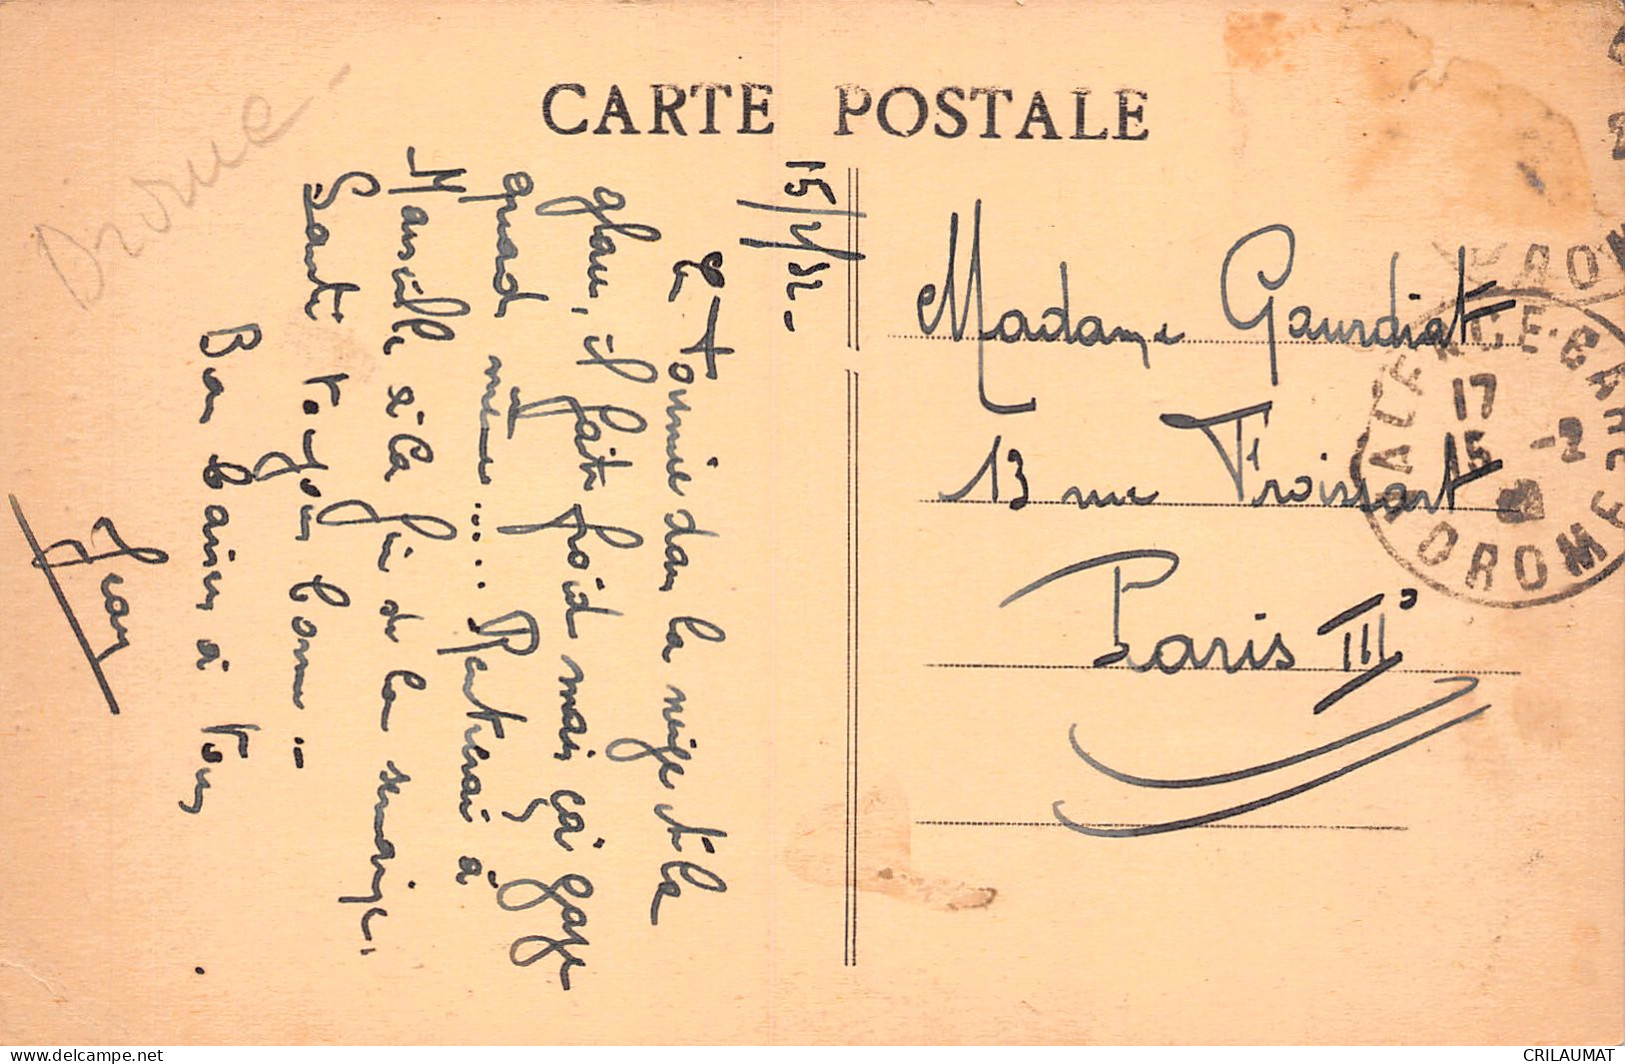 CARTE POSTALE
Drome -
15/2/32 -
La tournée dans la neige et la
glace, il fait froid mais ça gaze
quand même ..... Rentrerai à
Marseille à la fin de la semaine,
Santé toujours bonne . -
Bon baiser à tous
Jean
Madame Gaurdiat
13 rue Froissart
Paris IIIº
VALENCE-GARE
17
15 -2
DROME
www.delcampe.net
CRILAUMAT